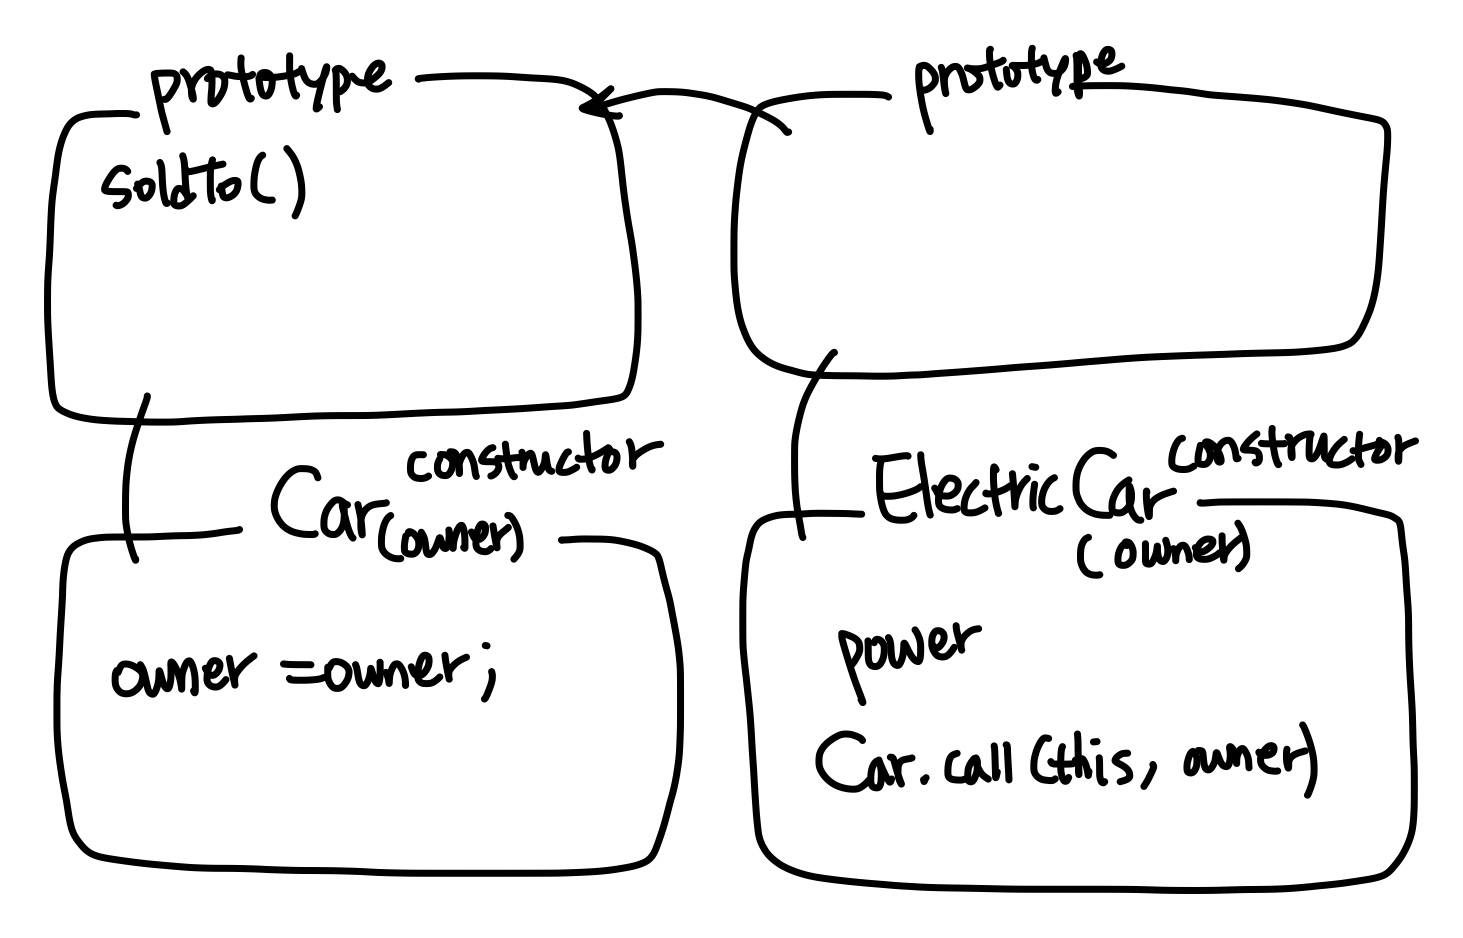 prototype
soldTo()
prototype
Car constructor
(owner)
owner = owner;
ElectricCar constructor
(owner)
power
Car.call(this, owner)